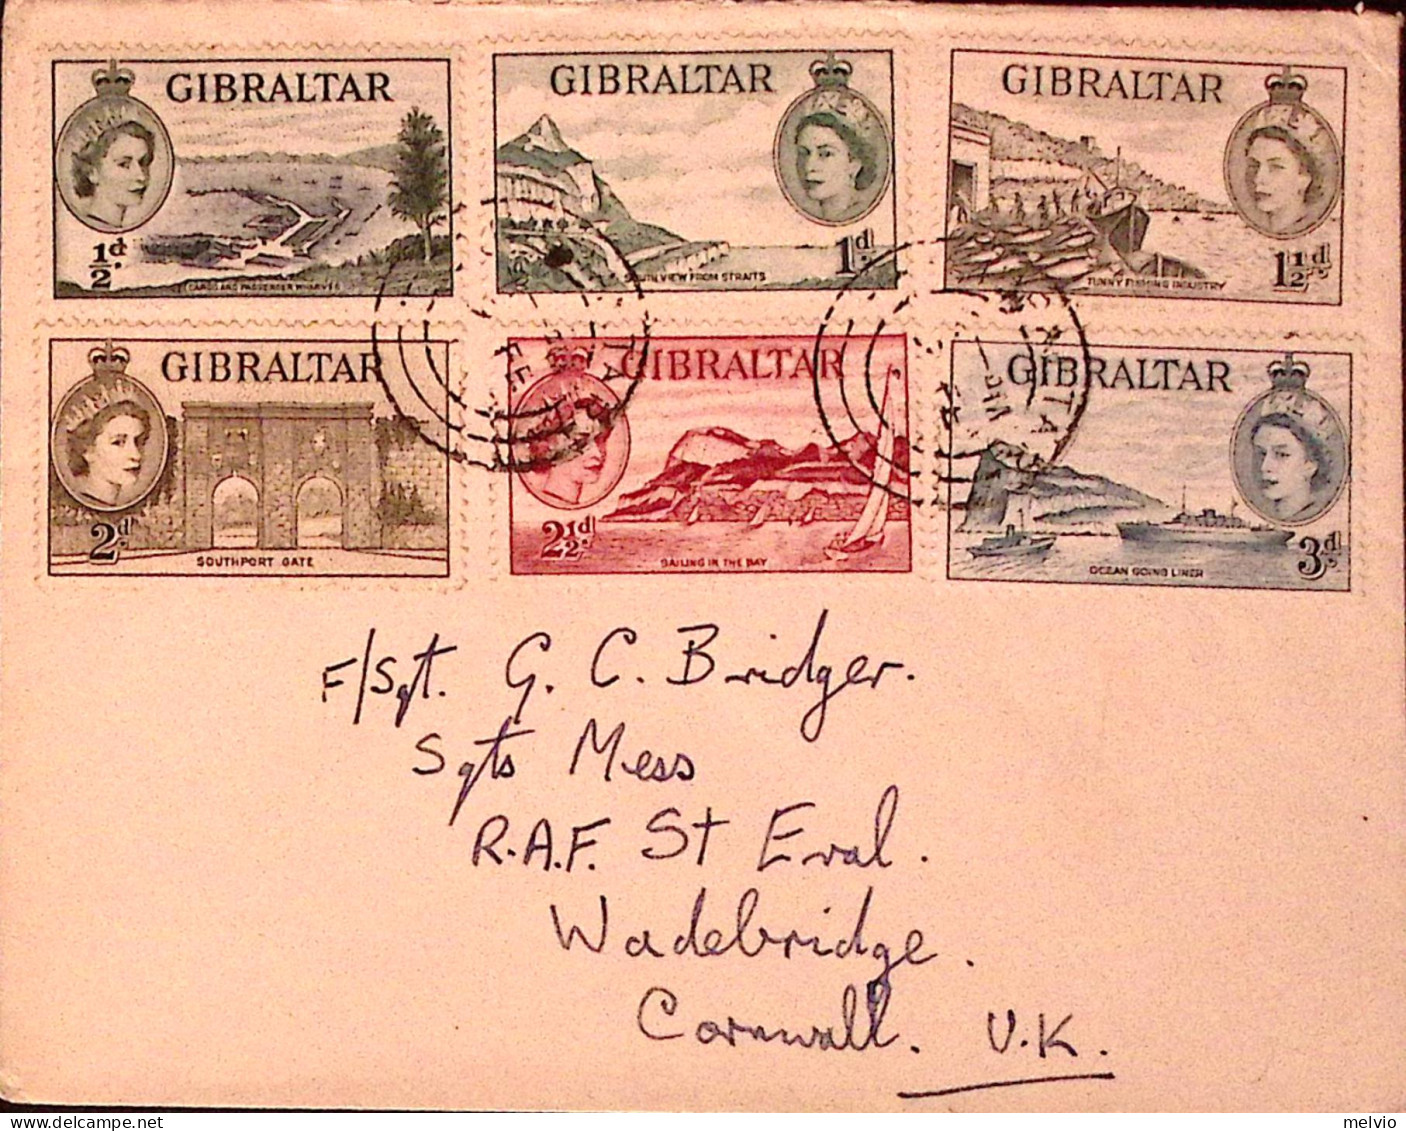 GIBRALTAR
½d.
CARGO AND PASSENGER WHARVES
GIBRALTAR
1d.
SOUTH VIEW FROM STRAITS
GIBRALTAR
1½d.
TUNNY FISHING INDUSTRY
GIBRALTAR
2d.
SOUTHPORT GATE
GIBRALTAR
2½d.
SAILING IN THE BAY
GIBRALTAR
3d.
OCEAN GOING LINER
F/Sgt. G. C. Bridger.
Sgts Mess
R.A.F. St Eval.
Wadebridge.
Cornwall. U.K.
melvio